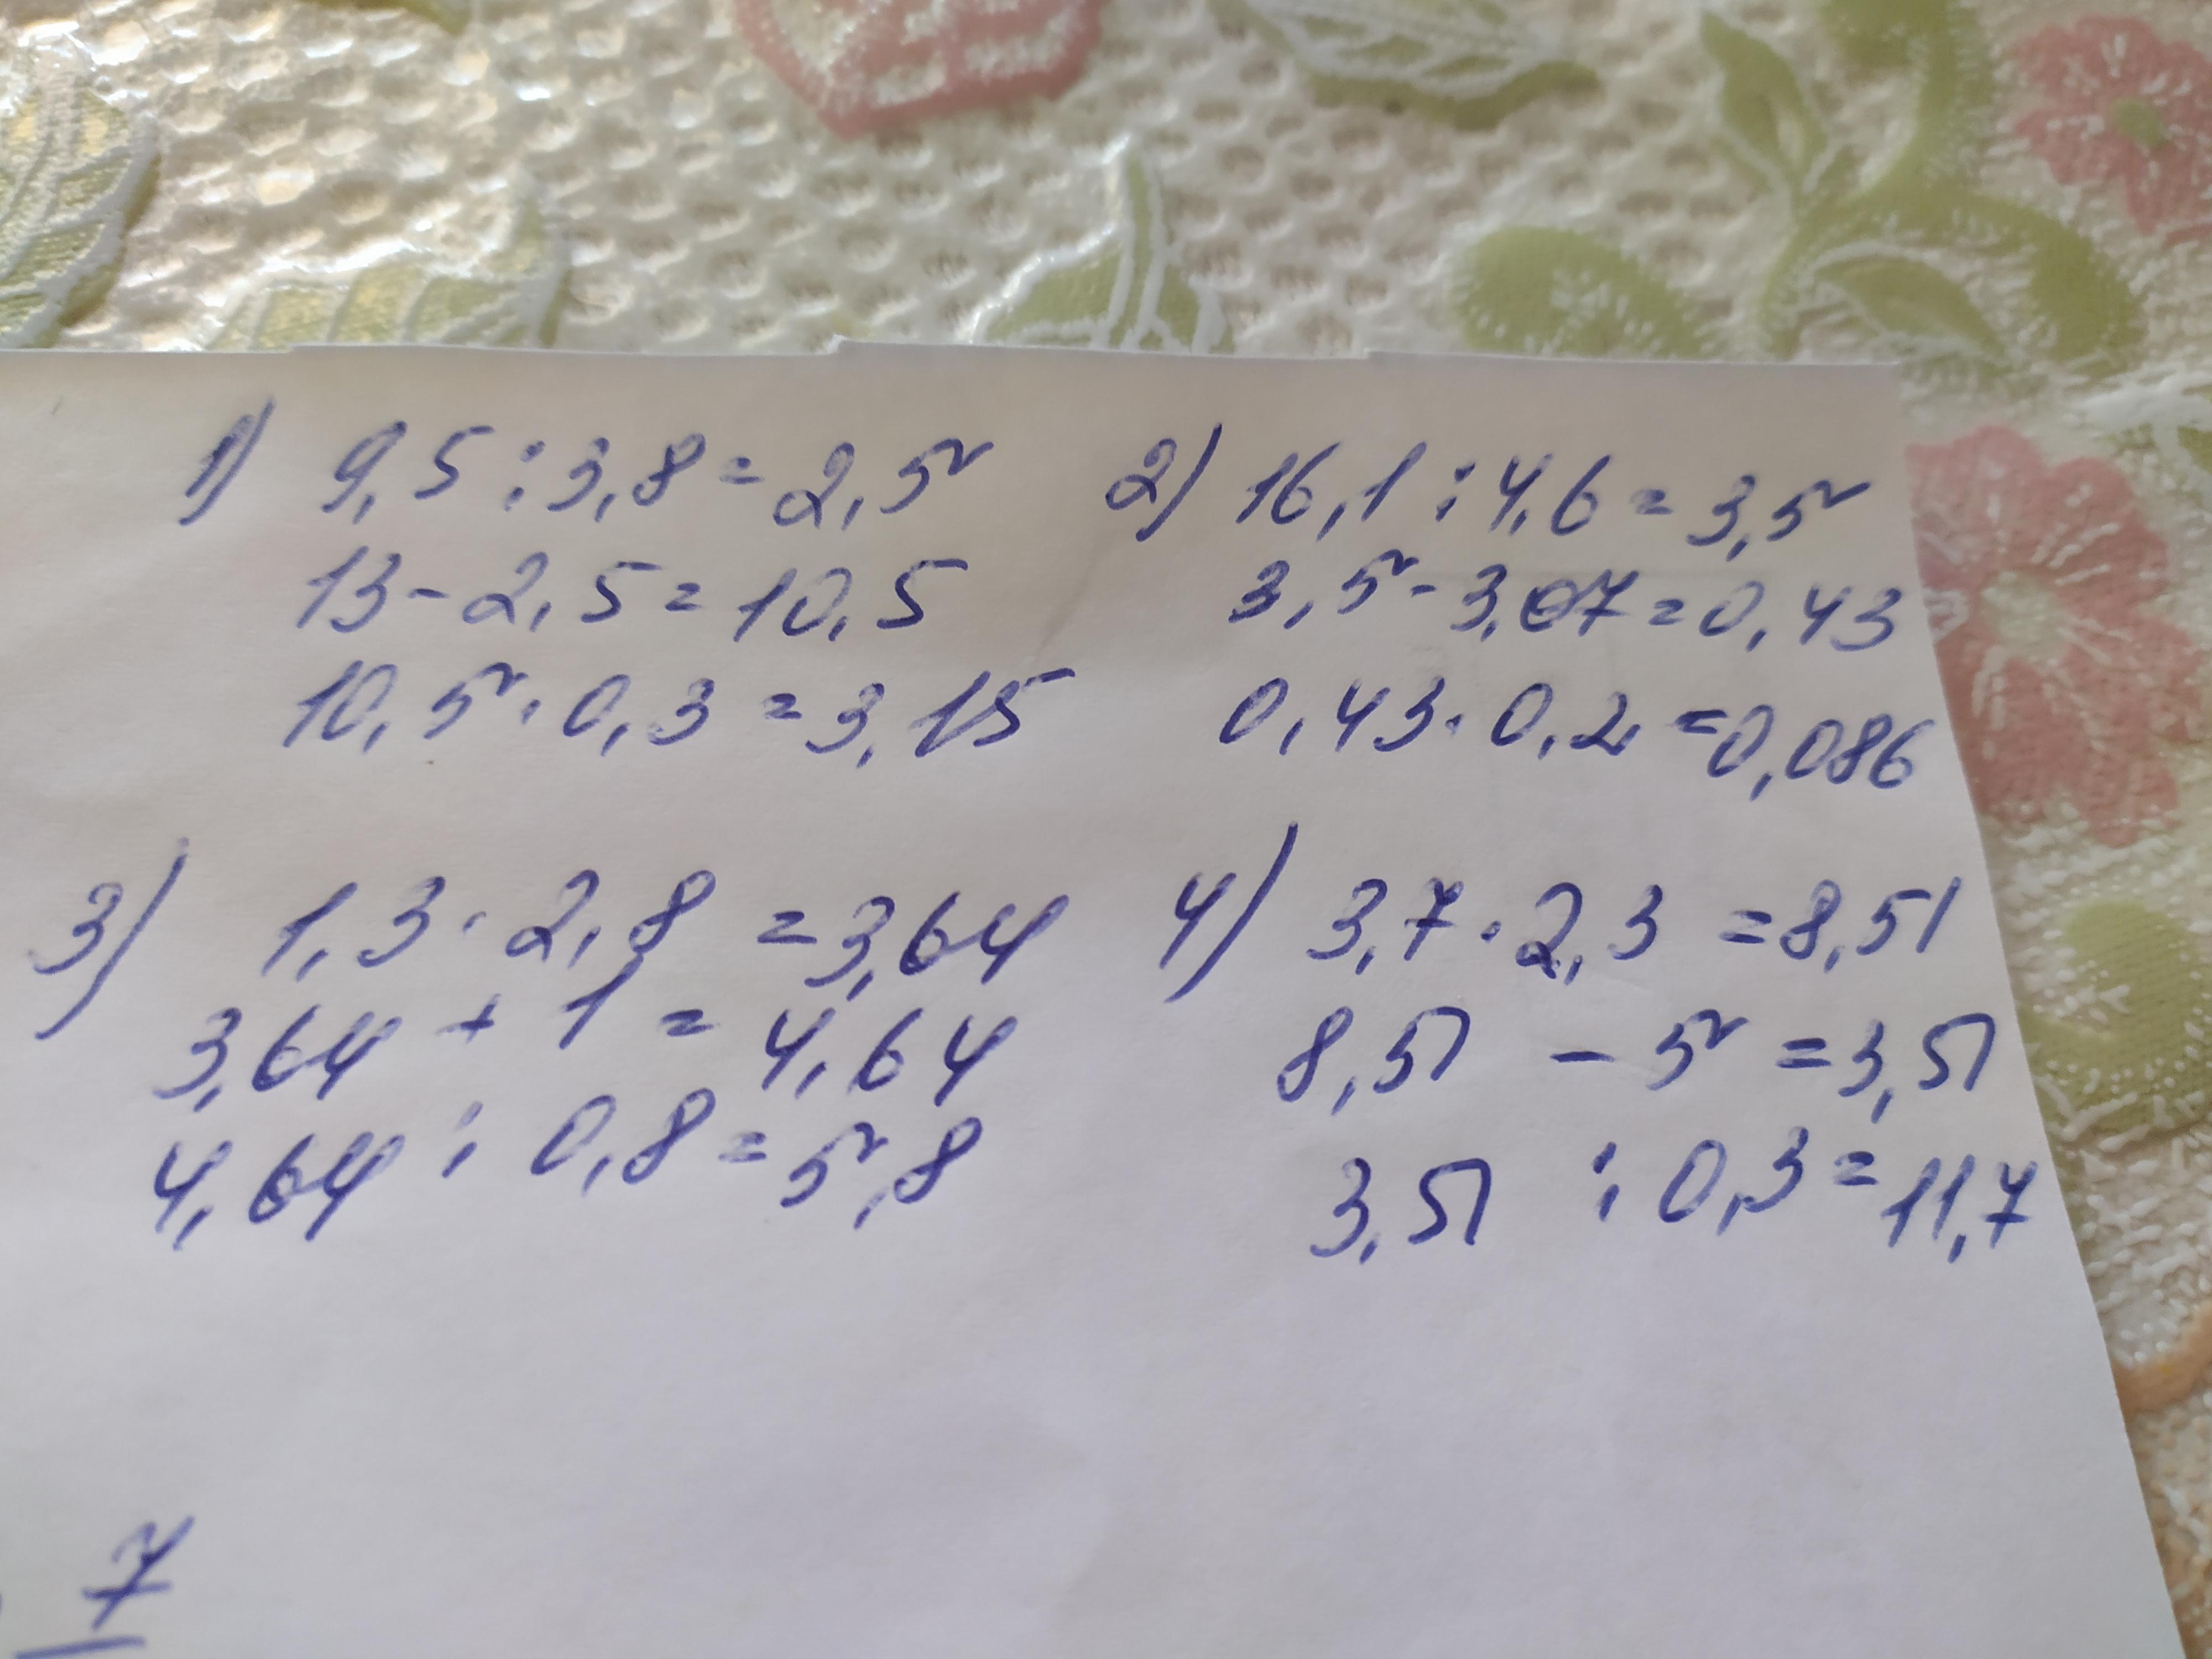 1) 9,5 : 3,8 = 2,5
13 - 2,5 = 10,5
10,5 · 0,3 = 3,15
2) 16,1 : 4,6 = 3,5
3,5 - 3,07 = 0,43
0,43 · 0,2 = 0,086
3) 1,3 · 2,8 = 3,64
3,64 + 1 = 4,64
4,64 : 0,8 = 5,8
4) 3,7 · 2,3 = 8,51
8,51 - 5 = 3,51
3,51 : 0,3 = 11,7
7